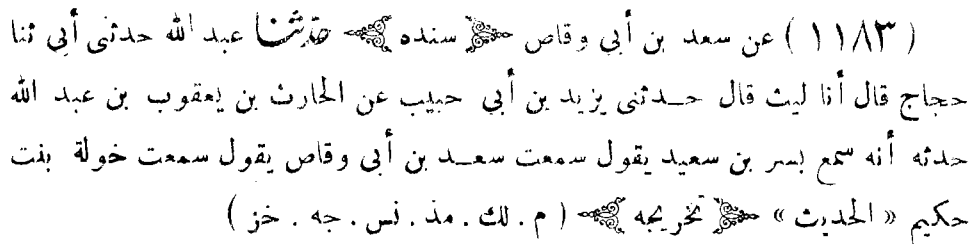 ( ١١٨٣ ) عن سعد بن أبي وقاص ﴿ سنده ﴾ حدثنا عبد الله حدثنى أبي ثنا
حجاج قال أنا ليث قال حـدثنى يزيد بن أبي حبيب عن الحارث بن يعقوب بن عبد الله
حدثه أنه سمع بسر بن سعيد يقول سمعت سعـد بن أبى وقاص يقول سمعت خولة بنت
حكيم « الحديث » ﴿ تخريجه ﴾ ( م . لك . مذ . نس . جه . خز )